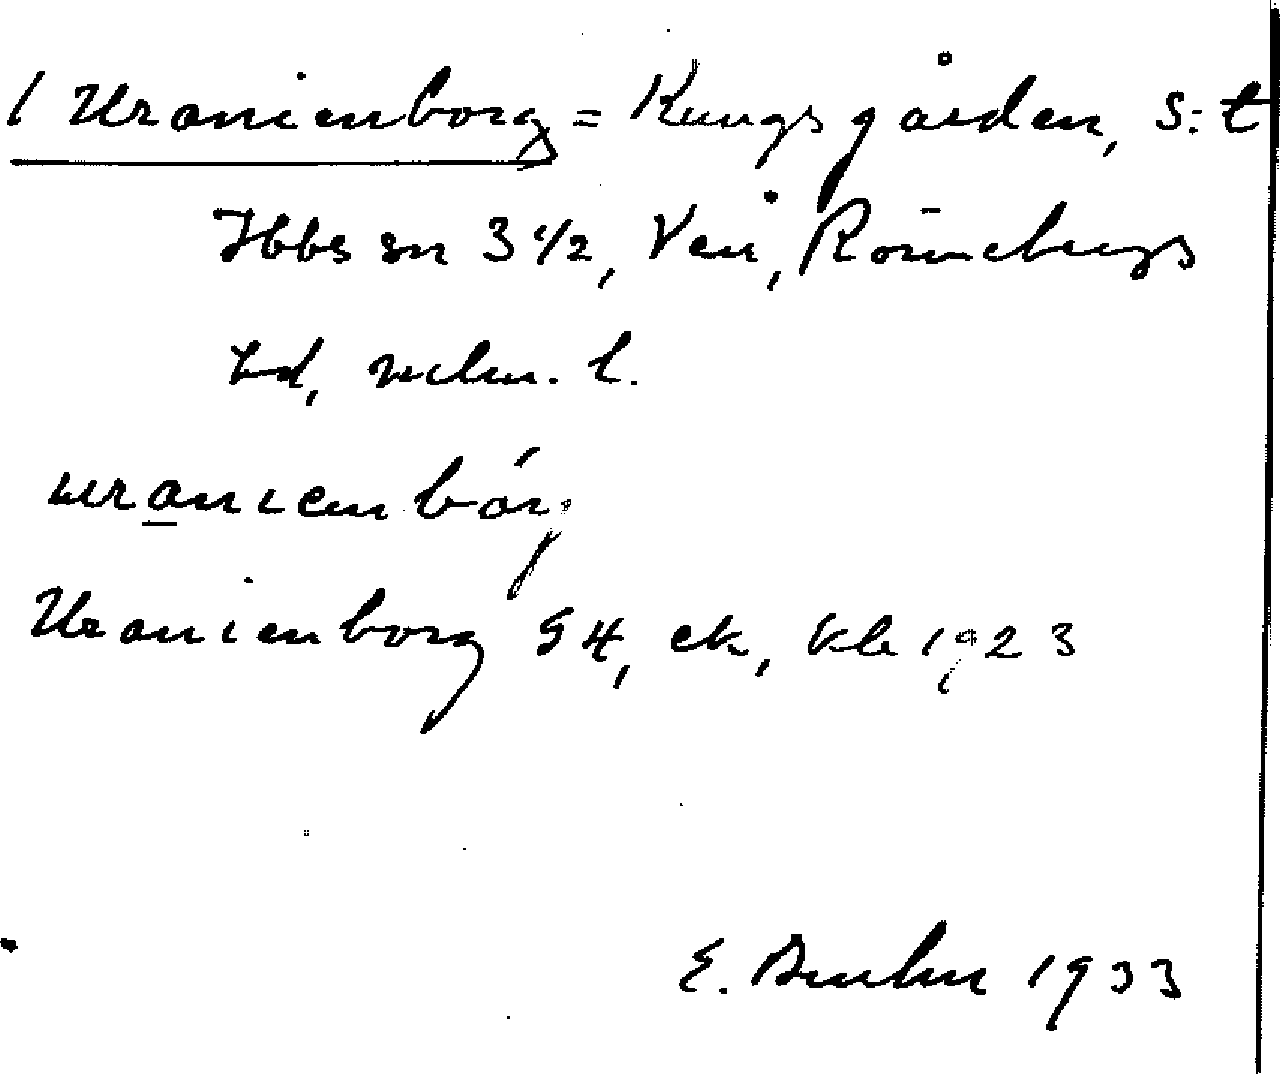 1 Uranienborg = Kungsgården, S:t
Ibbs sn 3 1/2, Ven, Rönnebergs
hd, Malm. l.
uranienbórj
Uranienborg G4, ek, Kb 1923
E. 1933